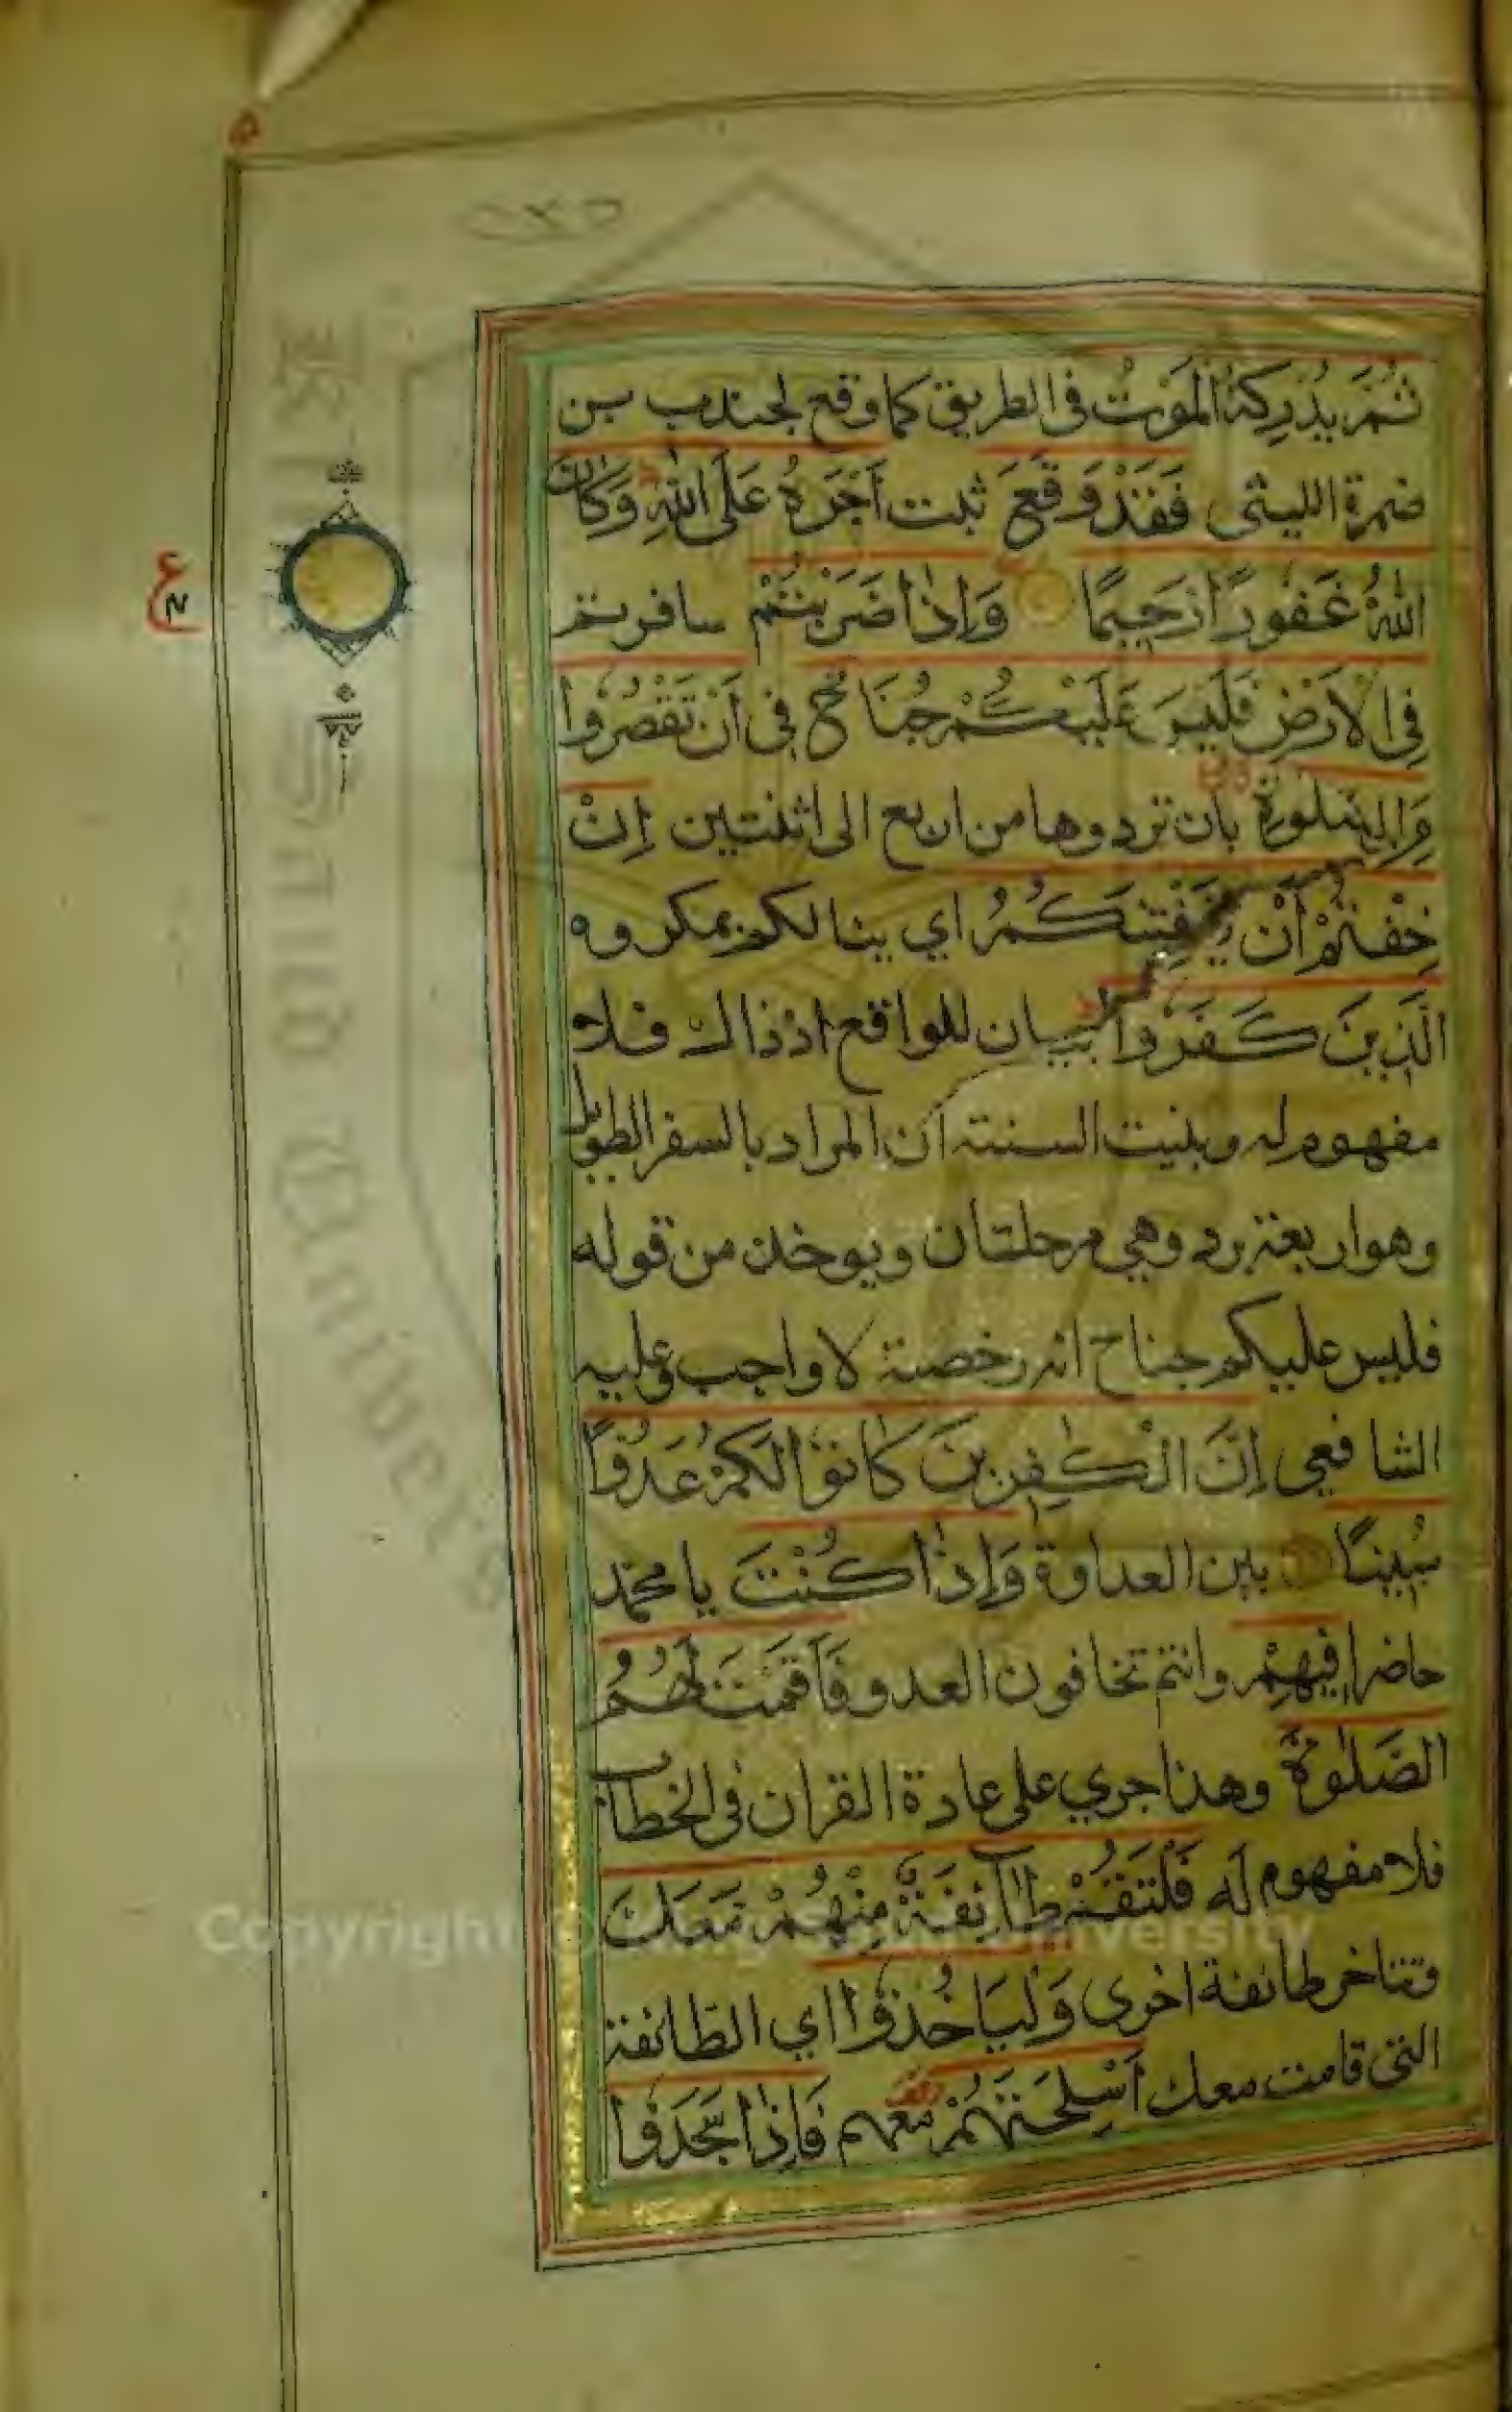 ثُمَّ يُدْرِكْهُ الْمَوْتُ فى الطريق كما وقع لجندب بن
ضمرة الليثى فَقَدْ وَقَعَ ثبت أَجْرُهُ عَلَى اللهِ وَكَانَ
اللهُ غَفُورًا رَحِيمًا وَإِذَا ضَرَبْتُمْ سافرتم
فِي الْأَرْضِ فَلَيْسَ عَلَيْكُمْ جُنَاحٌ فى أَنْ تَقْصُرُوا
مِنَ الصَّلٰوةِ بان تردوها من اربع الى اثنتين إِنْ
خِفْتُمْ أَنْ يَفْتِنَكُمُ اي ينالكم بمكروه
الَّذِينَ كَفَرُوا بيان للواقع اذ ذاك فلا
مفهوم له وبينت السنة ان المراد بالسفر الطويل
وهو اربعة برد وهي مرحلتان ويوخذ من قوله
فليس عليكم جناح انه رخصة لا واجب وعليه
الشافعي إِنَّ الْكٰفِرِينَ كَانُوا لَكُمْ عَدُوًّا
مُبِينًا بين العداوة وَإِذَا كُنْتَ يا محمد
حاضرا فِيهِمْ وانتم تخافون العدو فَأَقَمْتَ لَهُمُ
الصَّلٰوةَ وهذا جري على عادة القران فى الخطاب
فلا مفهوم له فَلْتَقُمْ طَائِفَةٌ مِنْهُمْ مَعَكَ
وتتاخر طائفة اخرى وَلْيَأْخُذُوا اي الطائفة
التى قامت معك أَسْلِحَتَهُمْ معهم فَإِذَا سَجَدُوا
Copyright © King Saud University